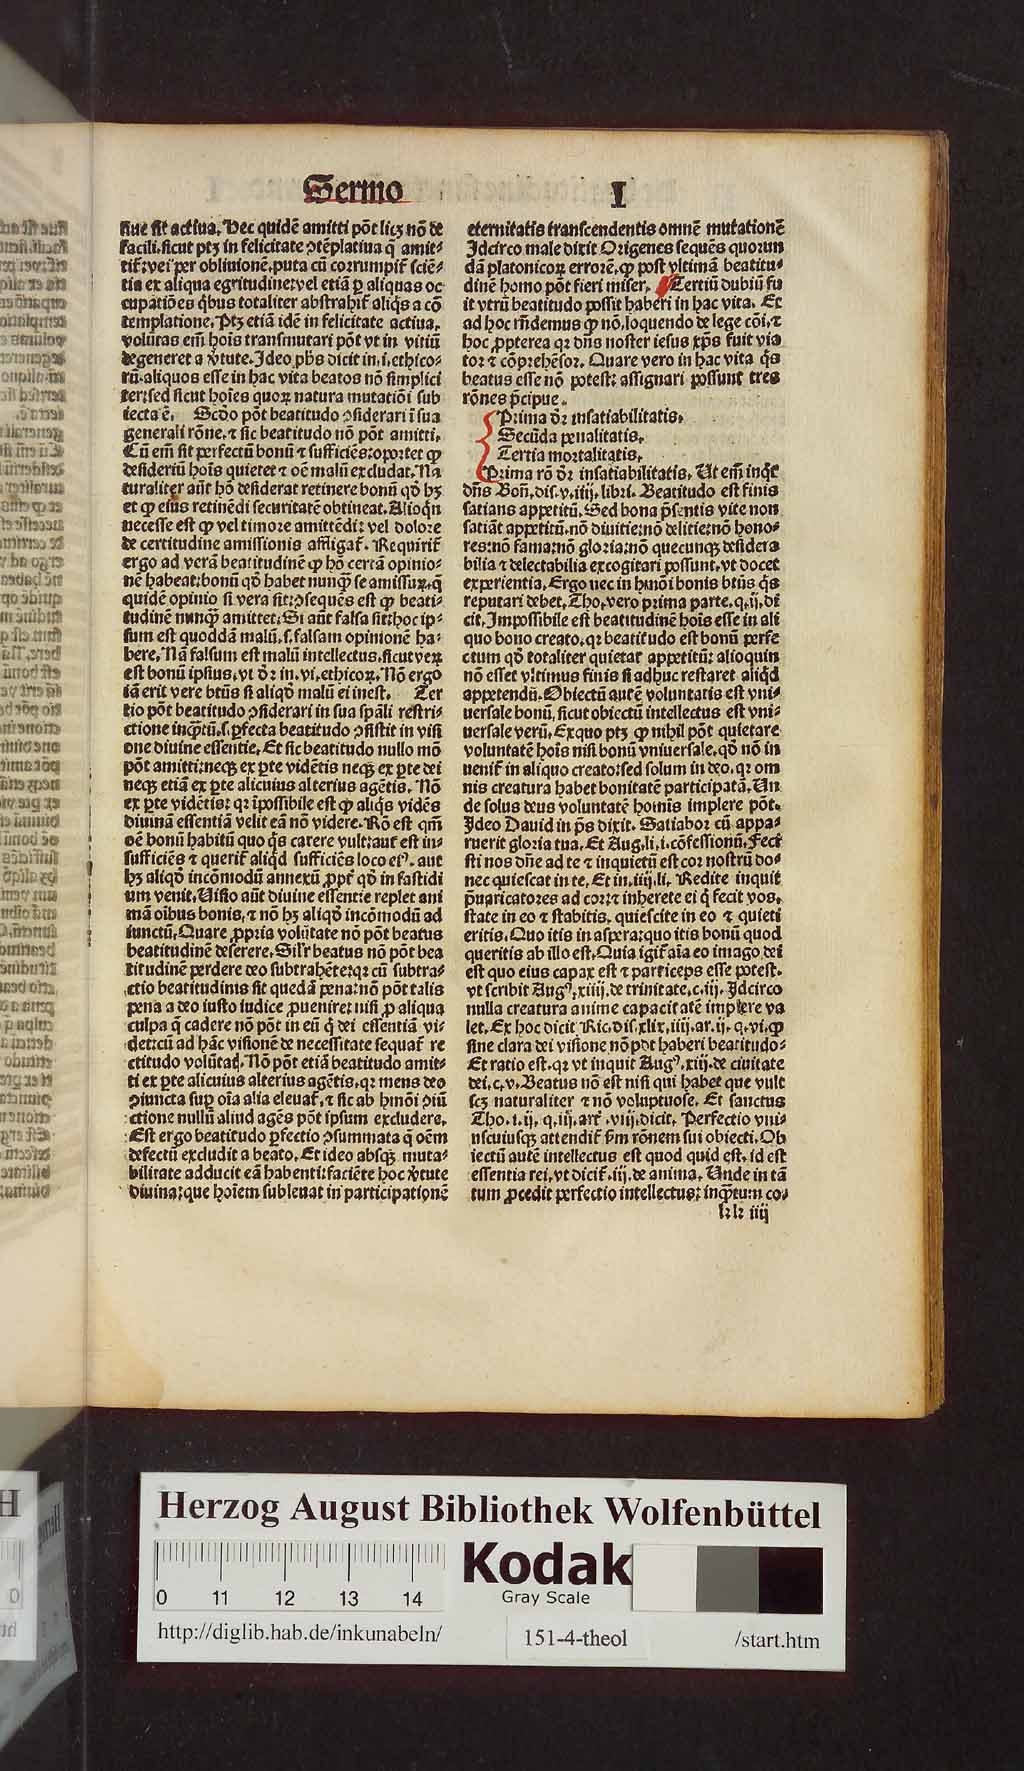 Sermo I
siue sit actiua. Hec quidē amitti pōt licꝫ nō de
facili. sicut ptꝫ in felicitate ɔtēplatiua q̄ amit-
tit̄: vel per obliuionē. puta cū corrumpit̄ sciē-
tia ex aliqua egritudine: vel etiā ꝑ aliquas oc
cupatiōes q̄bus totaliter abstrahit̄ aliq̄s a cō
templatione. Ptꝫ etiā idē in felicitate actiua.
volūtas em̄ hoīs transmutari pōt vt in vitiū
degeneret a v̄tute. Ideo ph̄s dicit in. i. ethico-
rū. aliquos esse in hac vita beatos nō simplici
ter: sed sicut hoīes quoꝝ natura mutatiōi sub
iecta ē. Scd̄o pōt beatitudo ɔsiderari ī sua
generali rōne. ⁊ sic beatitudo nō pōt amitti.
Cū em̄ sit perfectū bonū ⁊ sufficiēs: oportet ꝙ
desideriū hoīs quietet ⁊ oē malū excludat. Na
turaliter aūt hō desiderat retinere bonū qd̄ hꝫ
et ꝙ eius retinēdi securitatē obtineat. Alioqn̄
necesse est ꝙ vel timore amittēdi: vel dolore
de certitudine amissionis affligat̄. Requirit̄
ergo ad verā beatitudinē ꝙ hō certā opinio-
nē habeat: bonū qd̄ habet nunq̄ se amissuꝝ. q̄
quidē opinio si vera sit: ɔsequēs est ꝙ beati-
tudinē nunq̄ amittet. Si aūt falsa sit: hoc ip-
sum est quoddā malū. s. falsam opinionē ha-
bere. Nā falsum est malū intellectus. sicut veꝝ
est bonū ipsius. vt dr̄ in. vi. ethicoꝝ. Nō ergo
iā erit vere btūs si aliqd̄ malū ei inest. Ter
tio pōt beatitudo ɔsiderari in sua sp̄ali restri-
ctione inq̄tū. s. ꝑfecta beatitudo ɔsistit in visi
one diuine essentie. Et sic beatitudo nullo mō
pōt amitti: neqꝫ ex ꝑte vidētis neqꝫ ex ꝑte dei
neqꝫ etiā ex ꝑte alicuius alterius agētis. Nō
ex ꝑte vidētis: qꝛ īpossibile est ꝙ aliq̄s vidēs
diuinā essentiā velit eā nō videre. Rō est qm̄
oē bonū habitū quo q̄s carere vult: aut est in-
sufficiēs ⁊ querit̄ aliqd̄ sufficiēs loco eiꝰ. aut
hꝫ aliqd̄ incōmodū annexū ꝓpt̄ qd̄ in fastidi
um venit. Uisio aūt diuine essentie replet ani
mā oībus bonis. ⁊ nō hꝫ aliqd̄ incōmodū ad
iunctū. Quare ꝓpria volūtate nō pōt beatus
beatitudinē deserere. Sil̄r beatus nō pōt bea
titudinē perdere deo subtrahēte: qꝛ cū subtra-
ctio beatitudinis sit quedā pena: nō pōt talis
pena a deo iusto iudice ꝓueniret nisi ꝓ aliqua
culpa q̄ cadere nō pōt in eū q̄ dei essentiā vi-
det: cū ad hāc visionē de necessitate sequat̄ re
ctitudo volūtatꝭ. Nō pōt etiā beatitudo amit-
ti ex ꝑte alicuius alterius agētis. qꝛ mens deo
ɔiuncta suꝑ oīa alia eleuat̄. ⁊ sic ab hmōi ɔiū
ctione nullū aliud agēs pōt ipsum excludere.
Est ergo beatitudo ꝑfectio ɔsummata q̄ oēm
defectū excludit a beato. Et ideo absqꝫ muta-
bilitate adducit eā habenti: faciēte hoc v̄tute
diuina: que hoīem subleuat in participationē
eternitatis transcendentis omnē mutationē
Idcirco male dixit Origenes sequēs quorun
dā platonicoꝝ errorē. ꝙ post vltimā beatitu-
dinē homo pōt fieri miser. Tertiū dubiū fu
it vtrū beatitudo possit haberi in hac vita. Et
ad hoc rn̄demus ꝙ nō. loquendo de lege cōi. ⁊
hoc ꝓpterea qꝛ dn̄s noster iesus xp̄s fuit via
tor ⁊ cōprehēsor. Quare vero in hac vita q̄s
beatus esse nō potest: assignari possunt tres
rōnes p̄cipue.
Prima dr̄ insatiabilitatis.
Secūda penalitatis.
Tertia mortalitatis.
Prima rō dr̄ insatiabilitatis. Ut em̄ inqt̄
dn̄s Bon̄. dis. v. iiij. libri. Beatitudo est finis
satians appetitū. Sed bona p̄sentis vite non
satiāt appetitū. nō diuitie: nō delitie: nō hono-
res: nō fama: nō gloria: nō quecunqꝫ desidera
bilia ⁊ delectabilia excogitari possunt. vt docet
experientia. Ergo nec in hmōi bonis btūs q̄s
reputari debet. Tho. vero prima parte. q. ij. di
cit. Impossibile est beatitudinē hoīs esse in ali
quo bono creato. qꝛ beatitudo est bonū perfe
ctum qd̄ totaliter quietat appetitū: alioquin
nō esset vltimus finis si adhuc restaret aliqd̄
appetendū. Obiectū autē voluntatis est vni-
uersale bonū. sicut obiectū intellectus est vni-
uersale verū. Ex quo ptꝫ ꝙ nihil pōt quietare
voluntatē hoīs nisi bonū vniuersale. qd̄ nō in
uenit̄ in aliquo creato: sed solum in deo. qꝛ om
nis creatura habet bonitatē participatā. Un
de solus deus voluntatē hominis implere pōt.
Ideo Dauid in ps̄ dixit. Satiabor cū appa-
ruerit gloria tua. Et Aug. li. i. cōfessionū. Feci
sti nos dn̄e ad te ⁊ inquietū est cor nostrū do-
nec quiescat in te. Et in. iiij. li. Redite inquit
p̄uaricatores ad cor: ⁊ inherete ei q̄ fecit vos.
state in eo ⁊ stabitis. quiescite in eo ⁊ quieti
eritis. Quo itis in aspera: quo itis bonū quod
queritis ab illo est. Quia igit̄ aīa eo imago dei
est quo eius capax est ⁊ particeps esse potest.
vt scribit Augꝰ. xiiij. de trinitate. c. iij. Idcirco
nulla creatura anime capacitatē implere va
let. Ex hoc dicit Ric. dis. xlix. iiij. ar. ij. q. vi. ꝙ
sine clara dei visione nō pōt haberi beatitudo-
Et ratio est. qꝛ vt inquit Augꝰ. xiij. de ciuitate
dei. c. v. Beatus nō est nisi qui habet que vult
scꝫ naturaliter ⁊ nō voluptuose. Et sanctus
Tho. i. ij. q. iij. art̄. viij. dicit. Perfectio vni-
uscuiusqꝫ attendit̄ sm̄ rōnem sui obiecti. Ob
iectū autē intellectus est quod quid est. id est
essentia rei. vt dicit̄. iij. de anima. Unde in tā
tum ꝓcedit perfectio intellectus: inq̄tum co-
kk iiij
Herzog August Bibliothek Wolfenbüttel
0 11 12 13 14
Kodak
Gray Scale
http://diglib.hab.de/inkunabeln/
151-4-theol
/start.htm